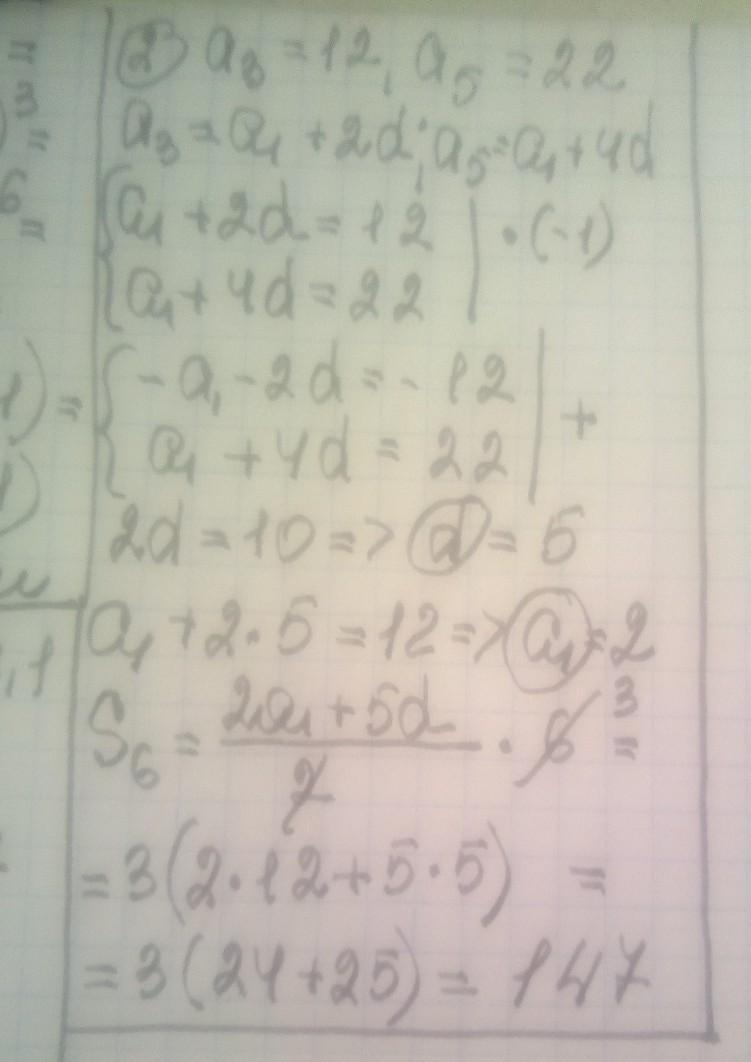 ② a₃ = 12, a₅ = 22
a₃ = a₁ + 2d; a₅ = a₁ + 4d
{ a₁ + 2d = 12 | · (-1)
{ a₁ + 4d = 22 |
{ -a₁ - 2d = -12 | +
{ a₁ + 4d = 22 |
2d = 10 => d = 5
a₁ + 2 · 5 = 12 => a₁ = 2
S₆ = (2a₁ + 5d) / 2 · 6 3 =
= 3(2 · 12 + 5 · 5) =
= 3(24 + 25) = 147
=
)³ =
6 =
1) =
1)
, 1